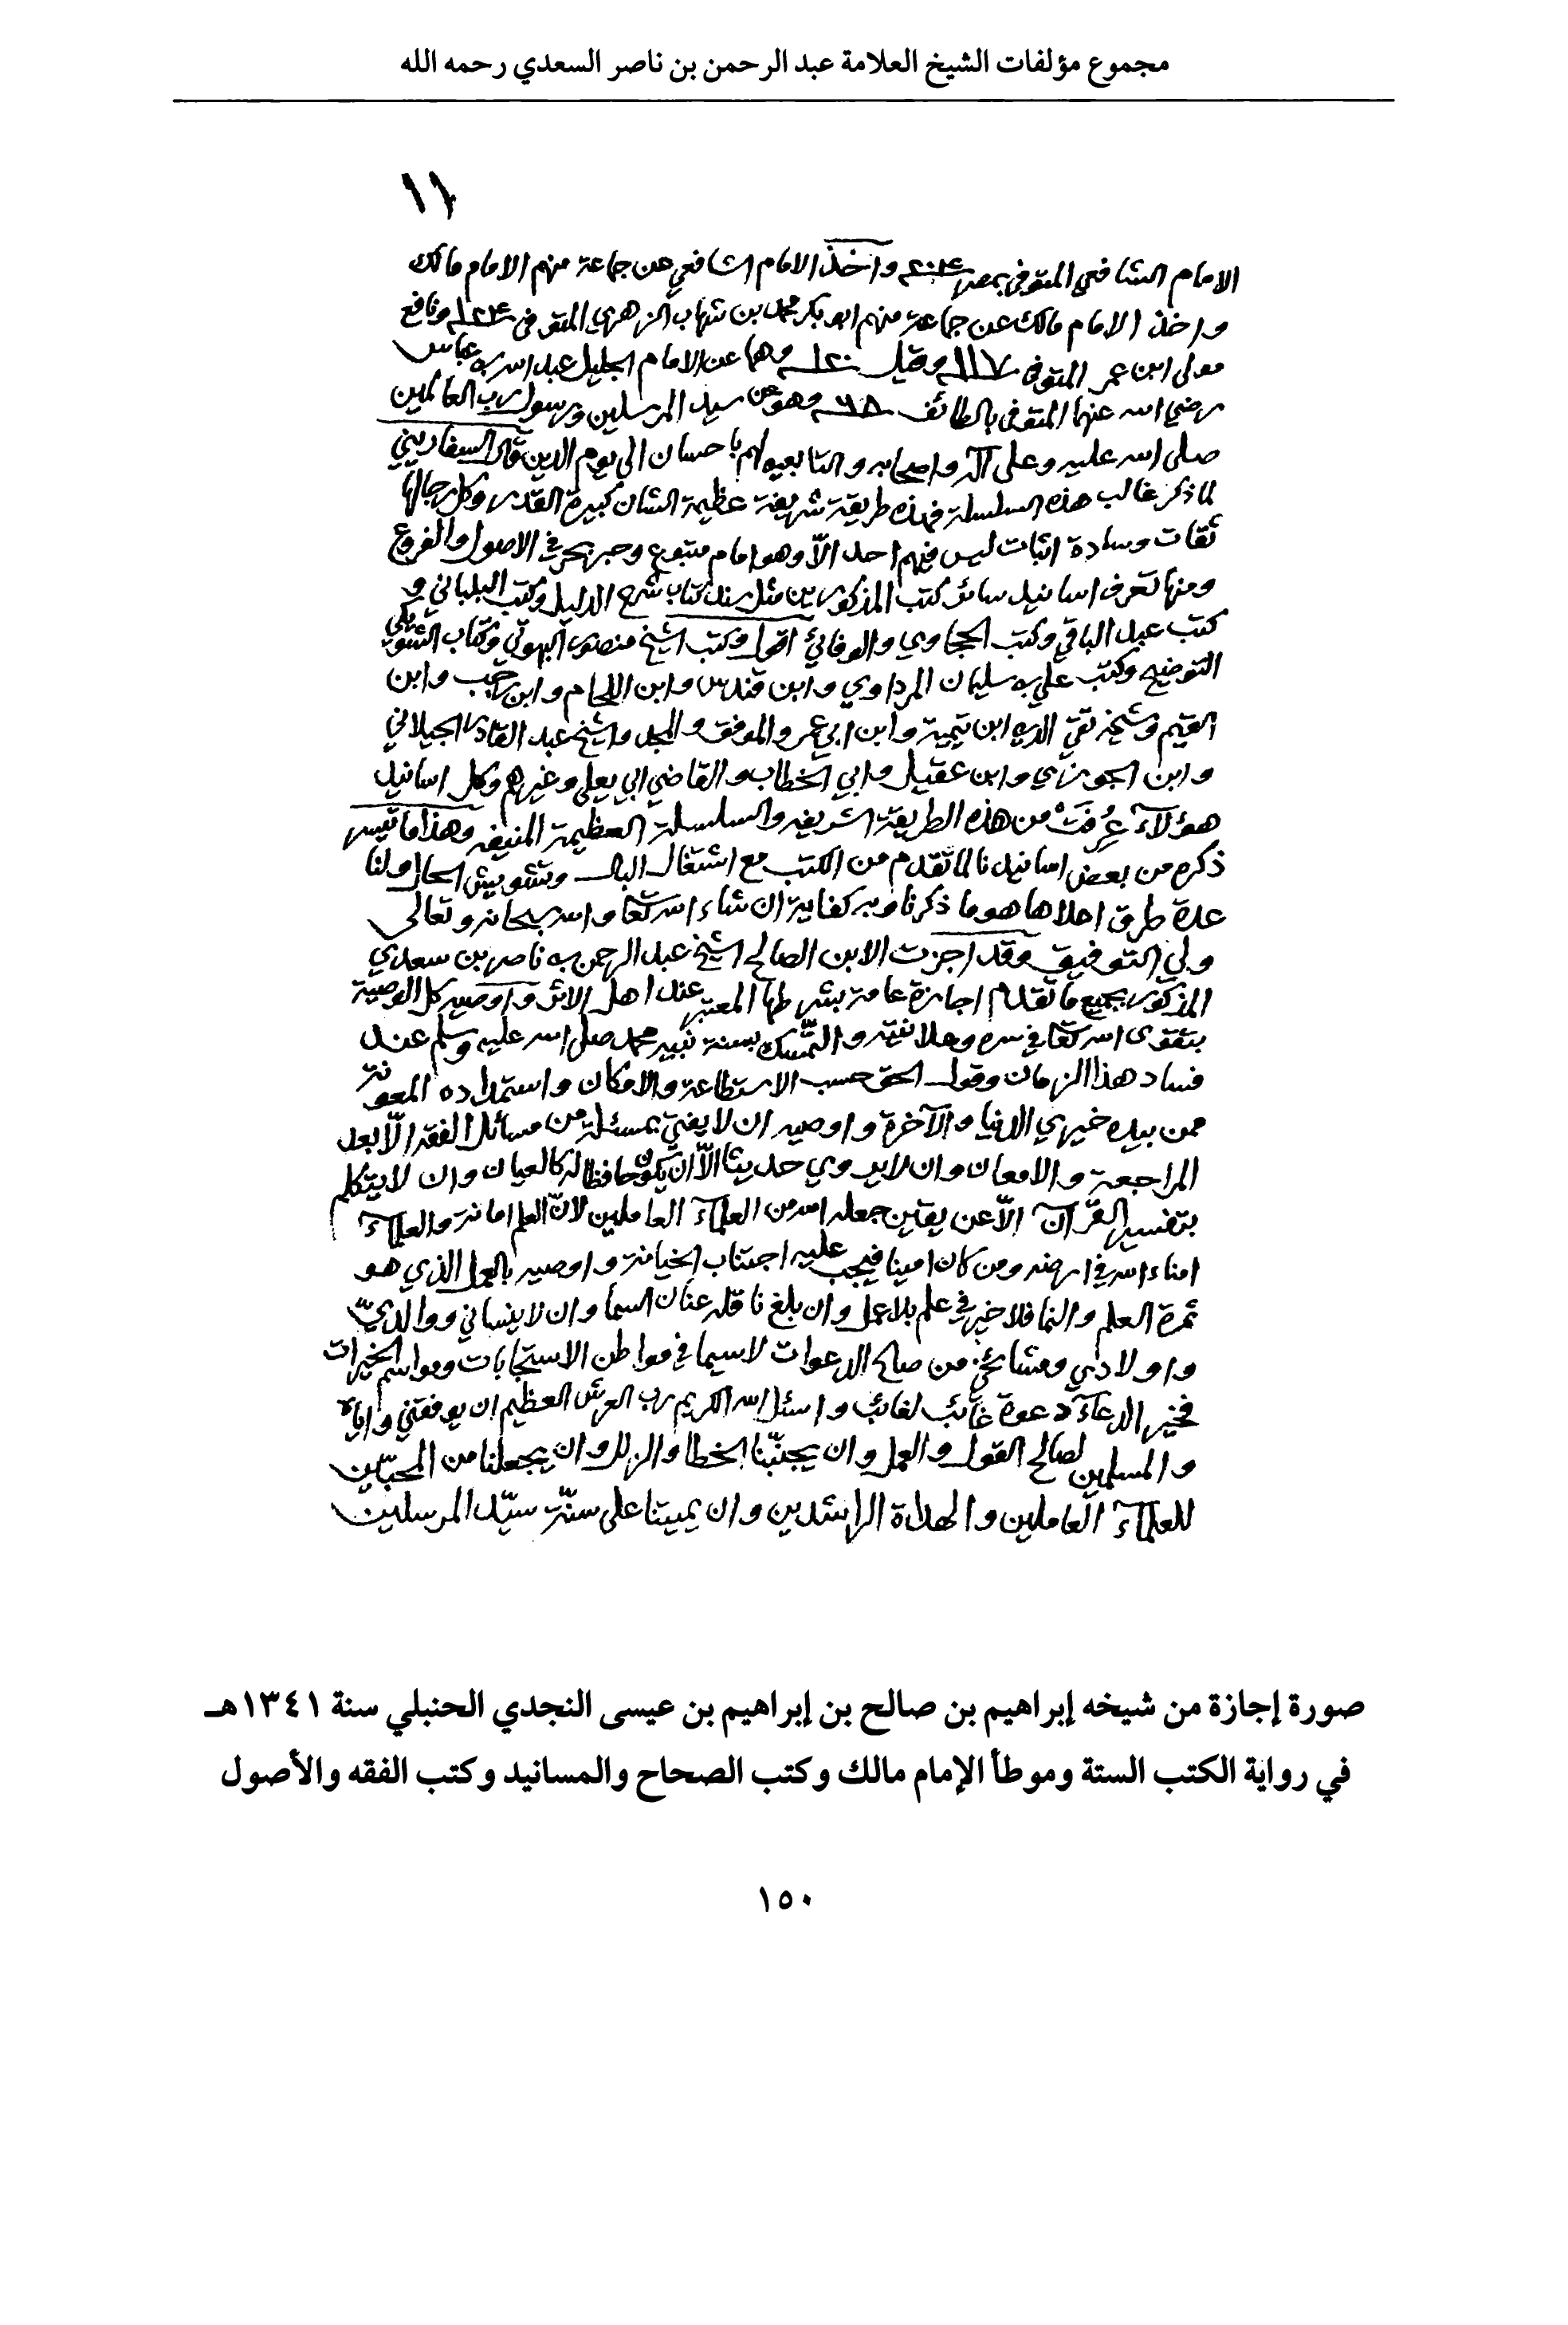 مجموع مؤلفات الشيخ العلامة عبد الرحمن بن ناصر السعدي رحمه الله
١١
الامام الشافعي المتوفى بمصر ٢٠٤ واخذ الامام الشافعي عن جماعة منهم الامام مالك
واخذ الامام مالك عن جماعة منهم ابو بكر محمد بن شهاب الزهري المتوفى ١٢٤ ونافع
مولى ابن عمر المتوفى ١١٧ وقيل ١٢٠ وهما عن الامام الجليل عبد الله بن عباس
رضي الله عنهما المتوفى بالطائف ٦٨ وهو عن سيد المرسلين ورسول رب العالمين
صلى الله عليه وعلى آله واصحابه والتابعين لهم باحسان الى يوم الدين قال السفاريني
لما ذكر غالب هذه السلسلة فهذه طريقة شريفة عظيمة الشان كبيرة القدر وكل رجالها
ثقات وسادة اثبات ليس فيهم احد الّا وهو امام متبوع وحبر بحر في الاصول والفروع
ومنها تعرف اسانيد سائر كتب المذكورين مثل سند كتاب شرح الدليل وكتب البلباني و
كتب عبد الباقي وكتب الحجاوي والوفائي اقول وكتب الشيخ منصور البهوتي وكتاب الشويكي
التوضيح وكتب علي بن سليمان المرداوي وابن قندس وابن اللحام وابن رجب وابن
القيم وشيخه تقي الدين ابن تيمية وابن ابي عمر والموفق والمجد والشيخ عبد القادر الجيلاني
وابن الجوزي وابن عقيل وابي الخطاب والقاضي ابي يعلى وغيرهم وكل اسانيد
هؤلآء عُرفَتْ من هذه الطريقة الشريفه والسلسلة العظيمة المنيفه وهذا ما تيسر
ذكره من بعض اسانيدنا لما تقدم من الكتب مع اشتغال البال وتشويش الحال ولنا
عدة طرق اعلاها هو ما ذكرنا وبه كفاية ان شاء الله تعا والله سبحانه وتعالى
ولي التوفيق وقد اجزت الابن الصالح الشيخ عبد الرحمن بن ناصر بن سعدي
المذكور بجميع ما تقدم اجازة عامة بشرطها المعتبر عند اهل الاثر واوصيه كل الوصية
بتقوى الله تعا في سره وعلانيته والتمّسك بسنة نبيه محمد صلى الله عليه وسلم عند
فساد هذا الزمان وقول الحق حسب الاستطاعة والامكان واستمداده المعونة
ممن بيده خيري الدنيا والآخرة واوصيه ان لا يفتي بمسئلة من مسائل الفقه الّا بعد
المراجعة والامعان وان لا يروي حديثا الّا ان يكون حافظا له كالعيان وان لا يتكلم
بتفسير القرآن الّا عن يقين جعله الله من العلمآء العاملين لانّ العلم امانة والعلمآء
امناء الله في ارضه ومن كان امينا فيجب عليه اجتناب الخيانة واوصيه بالعمل الذي هو
ثمرة العلم والنما فلا خير في علم بلا عمل وان بلغ ناقله عنان السما وان لا ينساني ووالديّ
واولادي ومشائخي من صالح الدعوات لاسيما في مواطن الاستجابات ومواسم الخيرات
فخير الدعآء دعوة غآئب لغائب واسئل الله الكريم رب العرش العظيم ان يوفقني واياه
والمسلمين لصالح القول والعمل وان يجنّبنا الخطا والزلل وان يجعلنا من المحبّين
للعلمآء العاملين والهداة الراشدين وان يميتنا على سنّة سيّد المرسلين
صورة إجازة من شيخه إبراهيم بن صالح بن إبراهيم بن عيسى النجدي الحنبلي سنة ١٣٤١هـ
في رواية الكتب الستة وموطأ الإمام مالك وكتب الصحاح والمسانيد وكتب الفقه والأصول
١٥٠